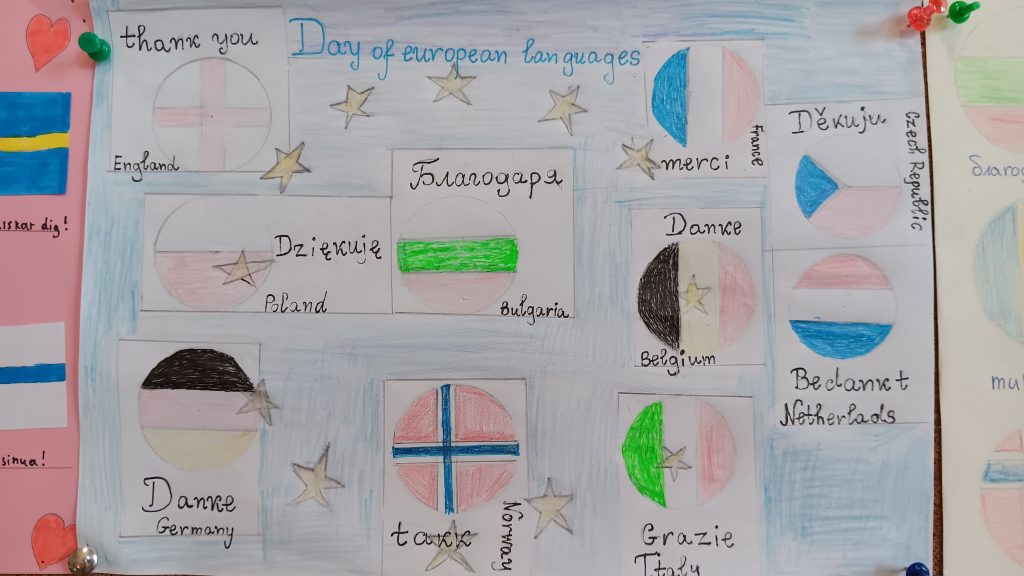 thank you
Day of european languages
England
France
merci
Děkuju
Czech Republic
Благодаря
Bulgaria
Dziękuję
Poland
Danke
Belgium
Bedankt
Netherlads
Danke
Germany
takk
Norway
Grazie
Italy
dig!